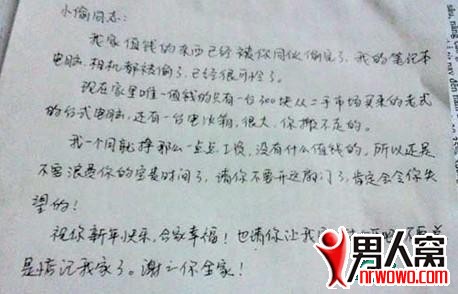 小偷同志:
我家值钱的东西已经被你同伙偷完了，我的笔记本
电脑，相机都被偷了，已经很可怜了。
现在家里唯一值钱的只有一台300块从二手市场买来的老式
的台式电脑，还有一台电冰箱，很大，你搬不走的。
我一个月就挣那么一点点工资，没有什么值钱的，所以还是
不要浪费你的宝贵时间了，请你不要开这扇门了，肯定会令你失
望的！
祝你新年快乐，合家幸福！也请你让我
是惦记我家了。谢谢你全家！
男人窝
nrwowo.com